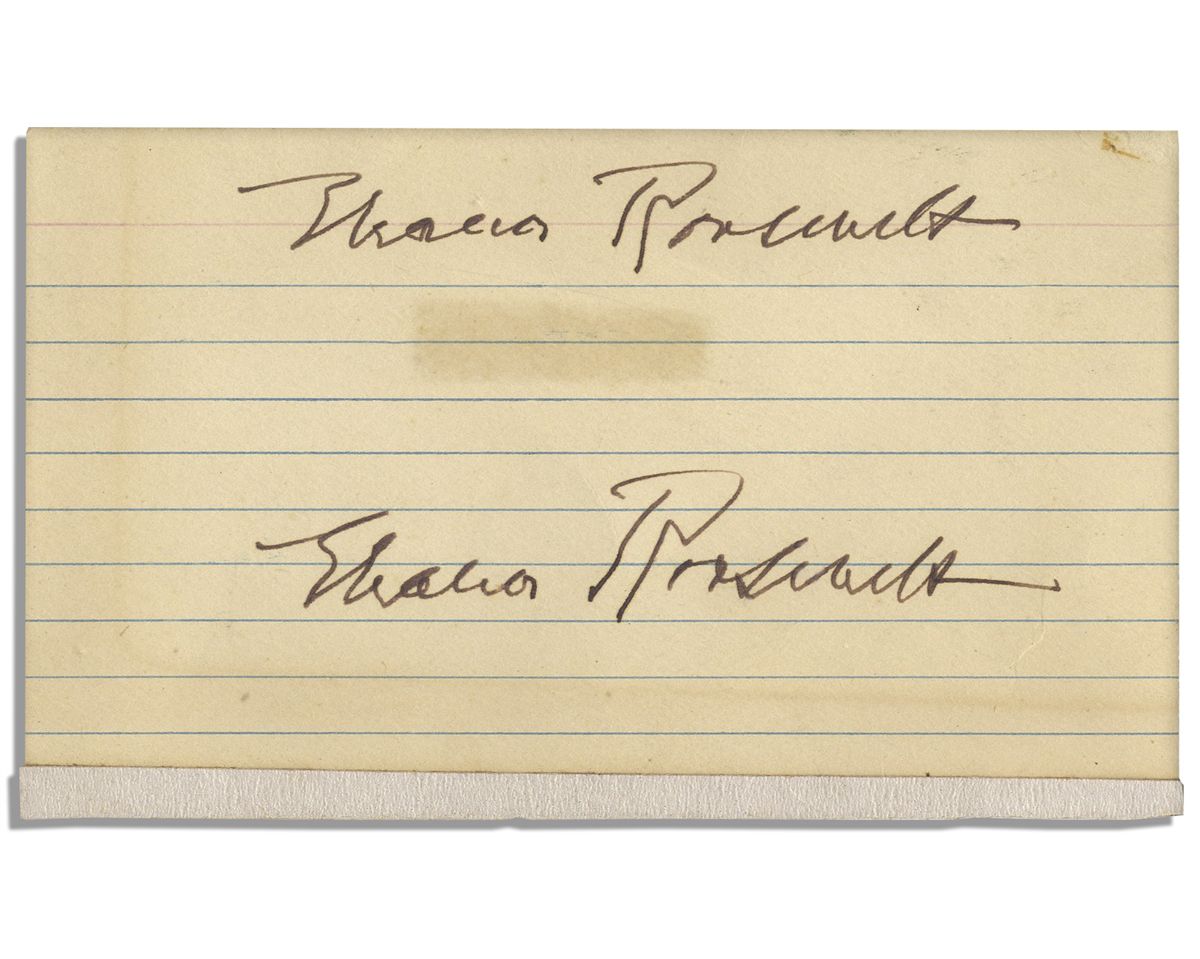 Eleanor Roosevelt
Eleanor Roosevelt